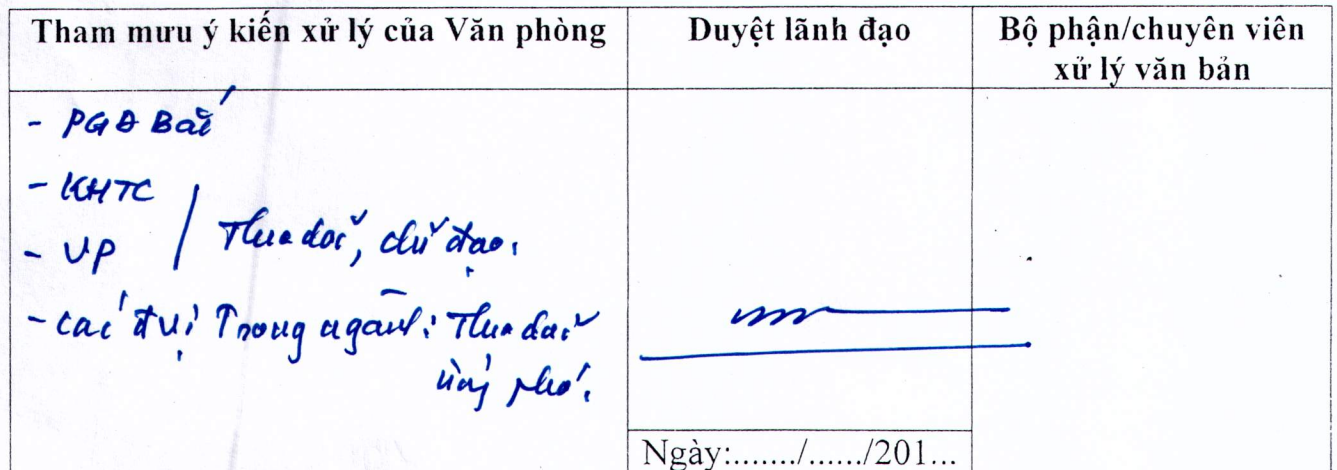 Tham mưu ý kiến xử lý của Văn phòng
Duyệt lãnh đạo
Bộ phận/chuyên viên
xử lý văn bản
- PGĐ Bái
- KHTC
- VP / Theo dõi, chỉ đạo.
- Các đvị Trong ngành: Theo dõi
ứng phó.
Ngày:......./....../201...